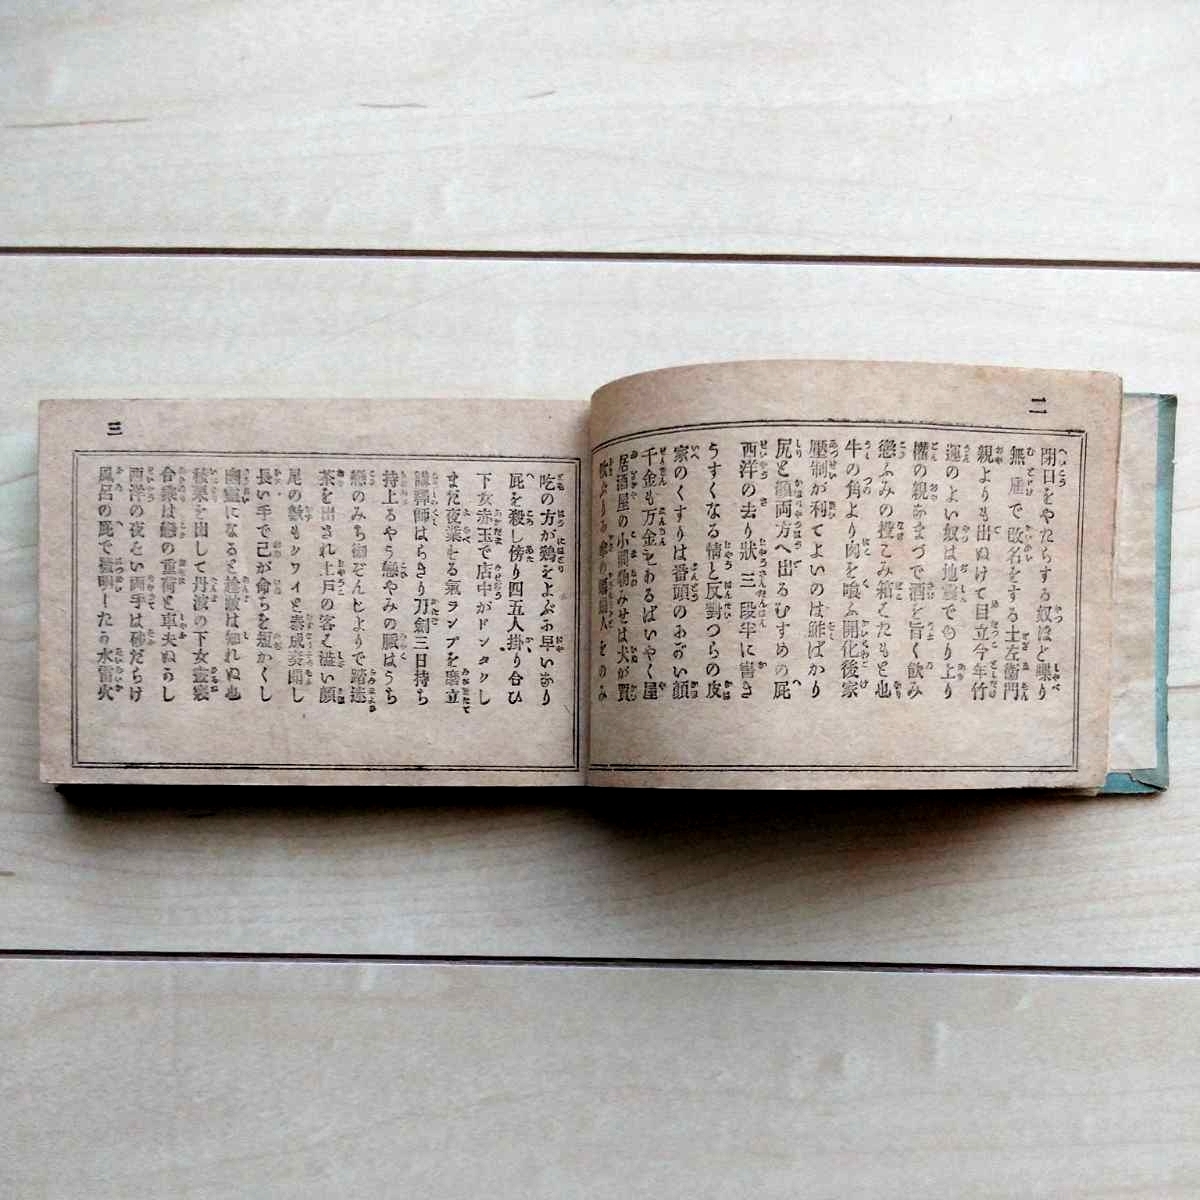 二
閉口をやたらする奴ほど喋り
無届で改名をする土左衛門
親よりも出ぬけて目立今年竹
運のよい奴は地震でめり上り
樽の親あまづで酒を旨く飲み
牛の角より肉を喰ふ開化後家
壓制が利てよいのは鮓ばかり
尻と顔両方へ出るむすめの屁
西洋の去り狀三段半に書き
うすくなる情と反對つらの皮
家のくすりは番頭のおごい顔
千金も万金もあるばいやく屋
居酒屋の小間物みせは犬が買
三
吃の方が鶏をよぶふ早いあり
屁を殺し傍り四五人掛り合ひ
下女赤玉で店中がドンタクし
まだ夜業をる氣ランプを磨立
講釋師はらきり刀創三日持ち
持上るやう戀やみの脈はうち
戀のみち御ぞんじよりで踏迷
茶を出され上戸の客え澁い顔
尾の數も
長い手で己が命ちを短かくし
幽霊になると
丹波の下女
合乗は戀の重荷と車夫ぬかし
西洋の夜
両手は砂だらけ
風呂の屁で發明したか水雷火